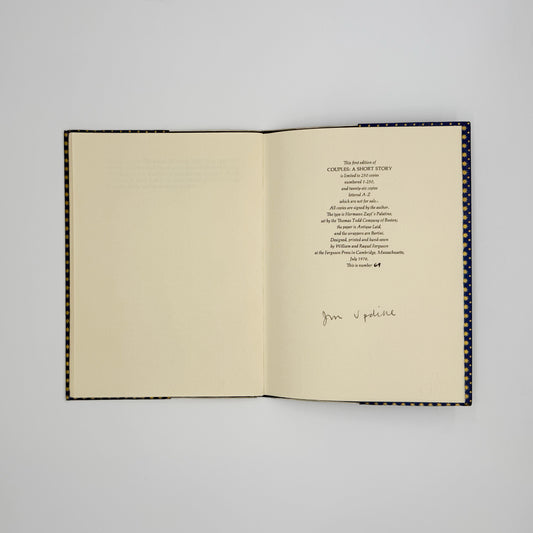 This first edition of
COUPLES: A SHORT STORY
is limited to 250 copies
numbered 1-250,
and twenty-six copies
lettered A-Z
which are not for sale.
All copies are signed by the author.
The type is Hermann Zapf's Palatino,
set by the Thomas Todd Company of Boston;
the paper is Antique Laid,
and the wrappers are Bertini.
Designed, printed and hand-sewn
by William and Raquel Ferguson
at the Ferguson Press in Cambridge, Massachusetts,
July 1976.
This is number 69
John Updike